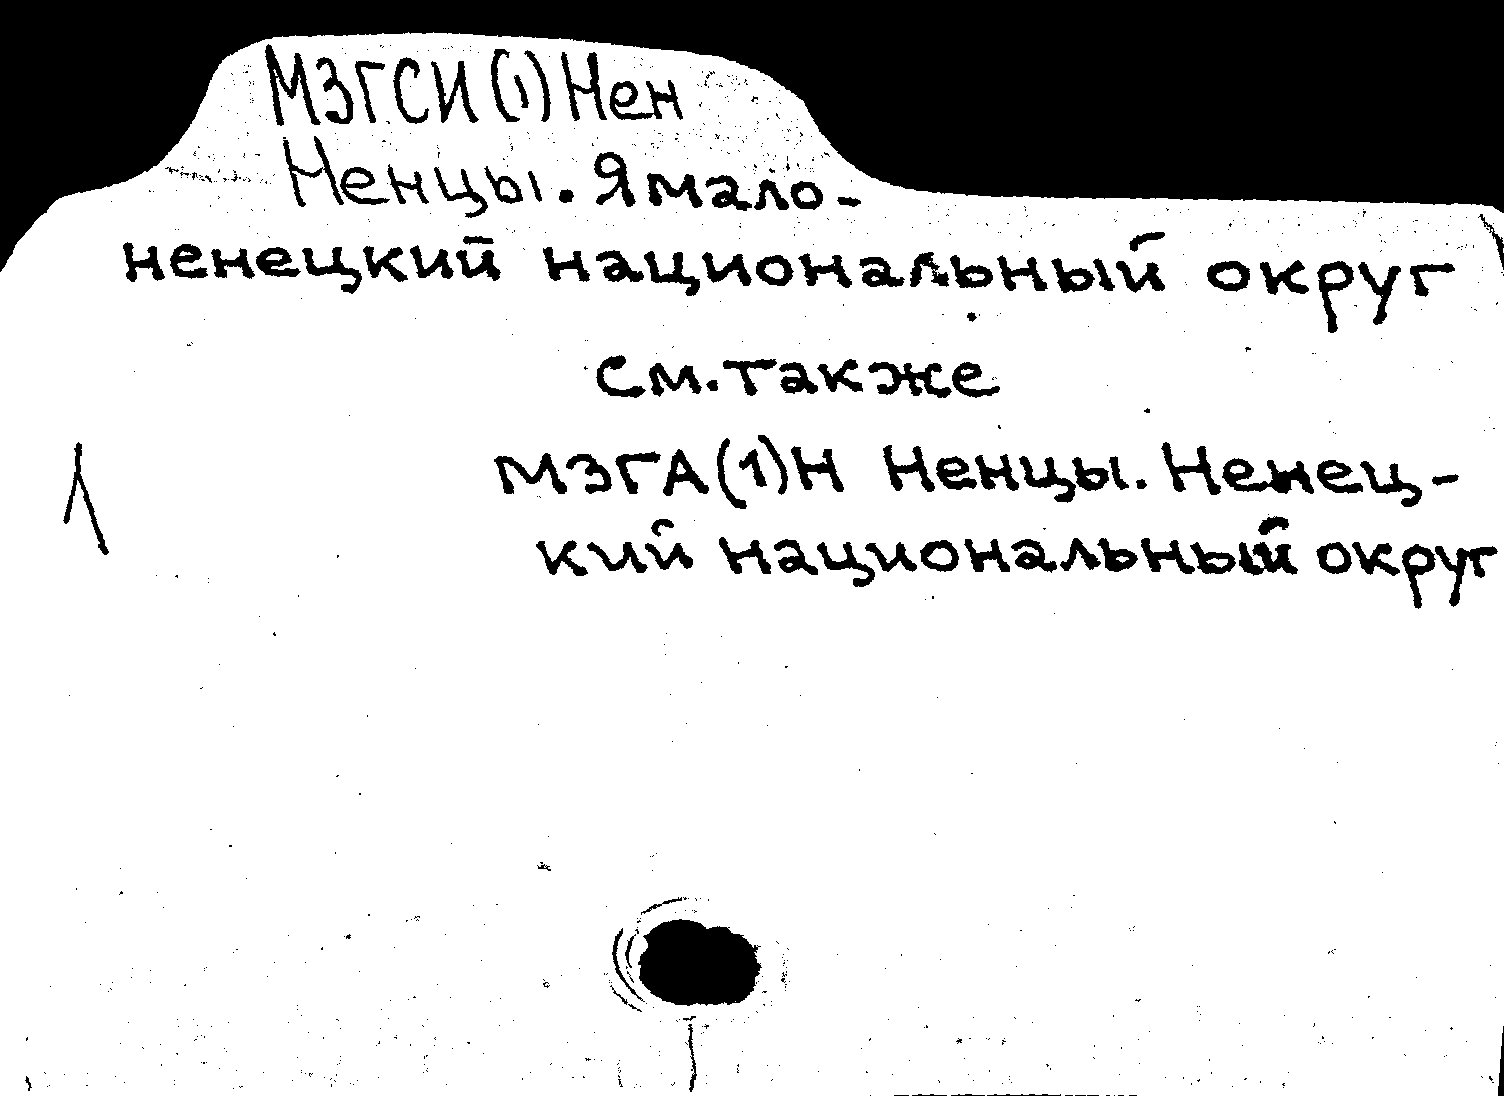 МЗГСИ(1)Нен
Ненцы. Ямало-
ненецкий национальный округ
См. также
МЗГА(1)Н Ненцы. Ненец-
кий национальный округ